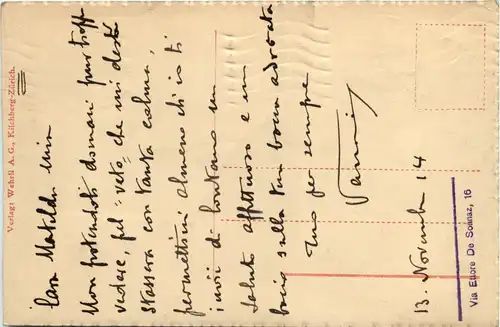 Cara Matilde mia
Non potendoti domani purtroppo
vedere, pel "veto" che mi desti
stassera con tanta calma,
permettimi almeno ch'io ti
invii di lontano un
saluto affettuoso e un
bacio sulla tua bocca adorata
Tuo per sempre
13. Novembre 14
Via Ettore De Sonnaz, 16
Verlag: Wehrli A. G., Kilchberg-Zürich.